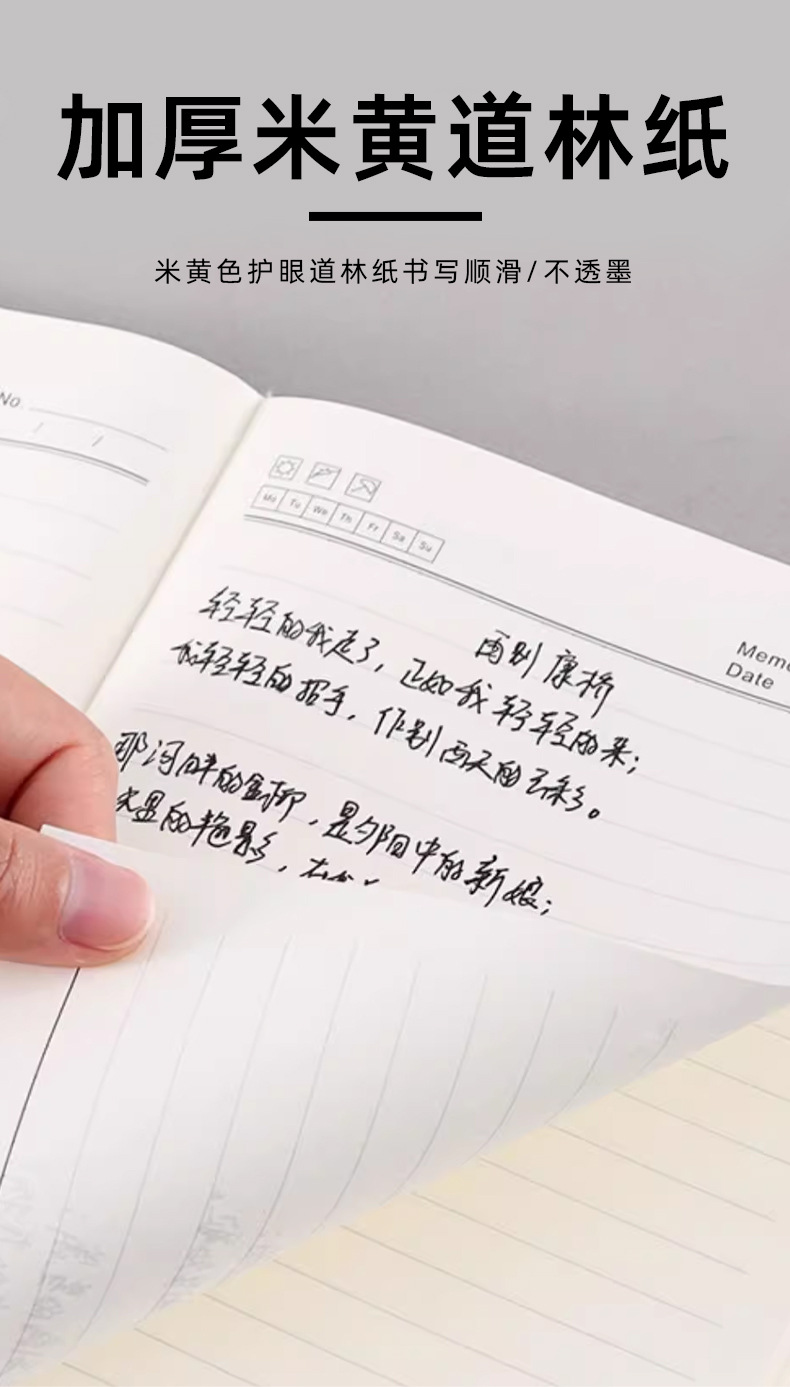 加厚米黄道林纸
米黄色护眼道林纸书写顺滑/不透墨
No.
Mo Tu We Th Fr Sa Su
Memo
Date
再别康桥
轻轻的我走了，正如我轻轻的来；
我轻轻的招手，作别西天的云彩。
那河畔的金柳，是夕阳中的新娘；
的艳影，